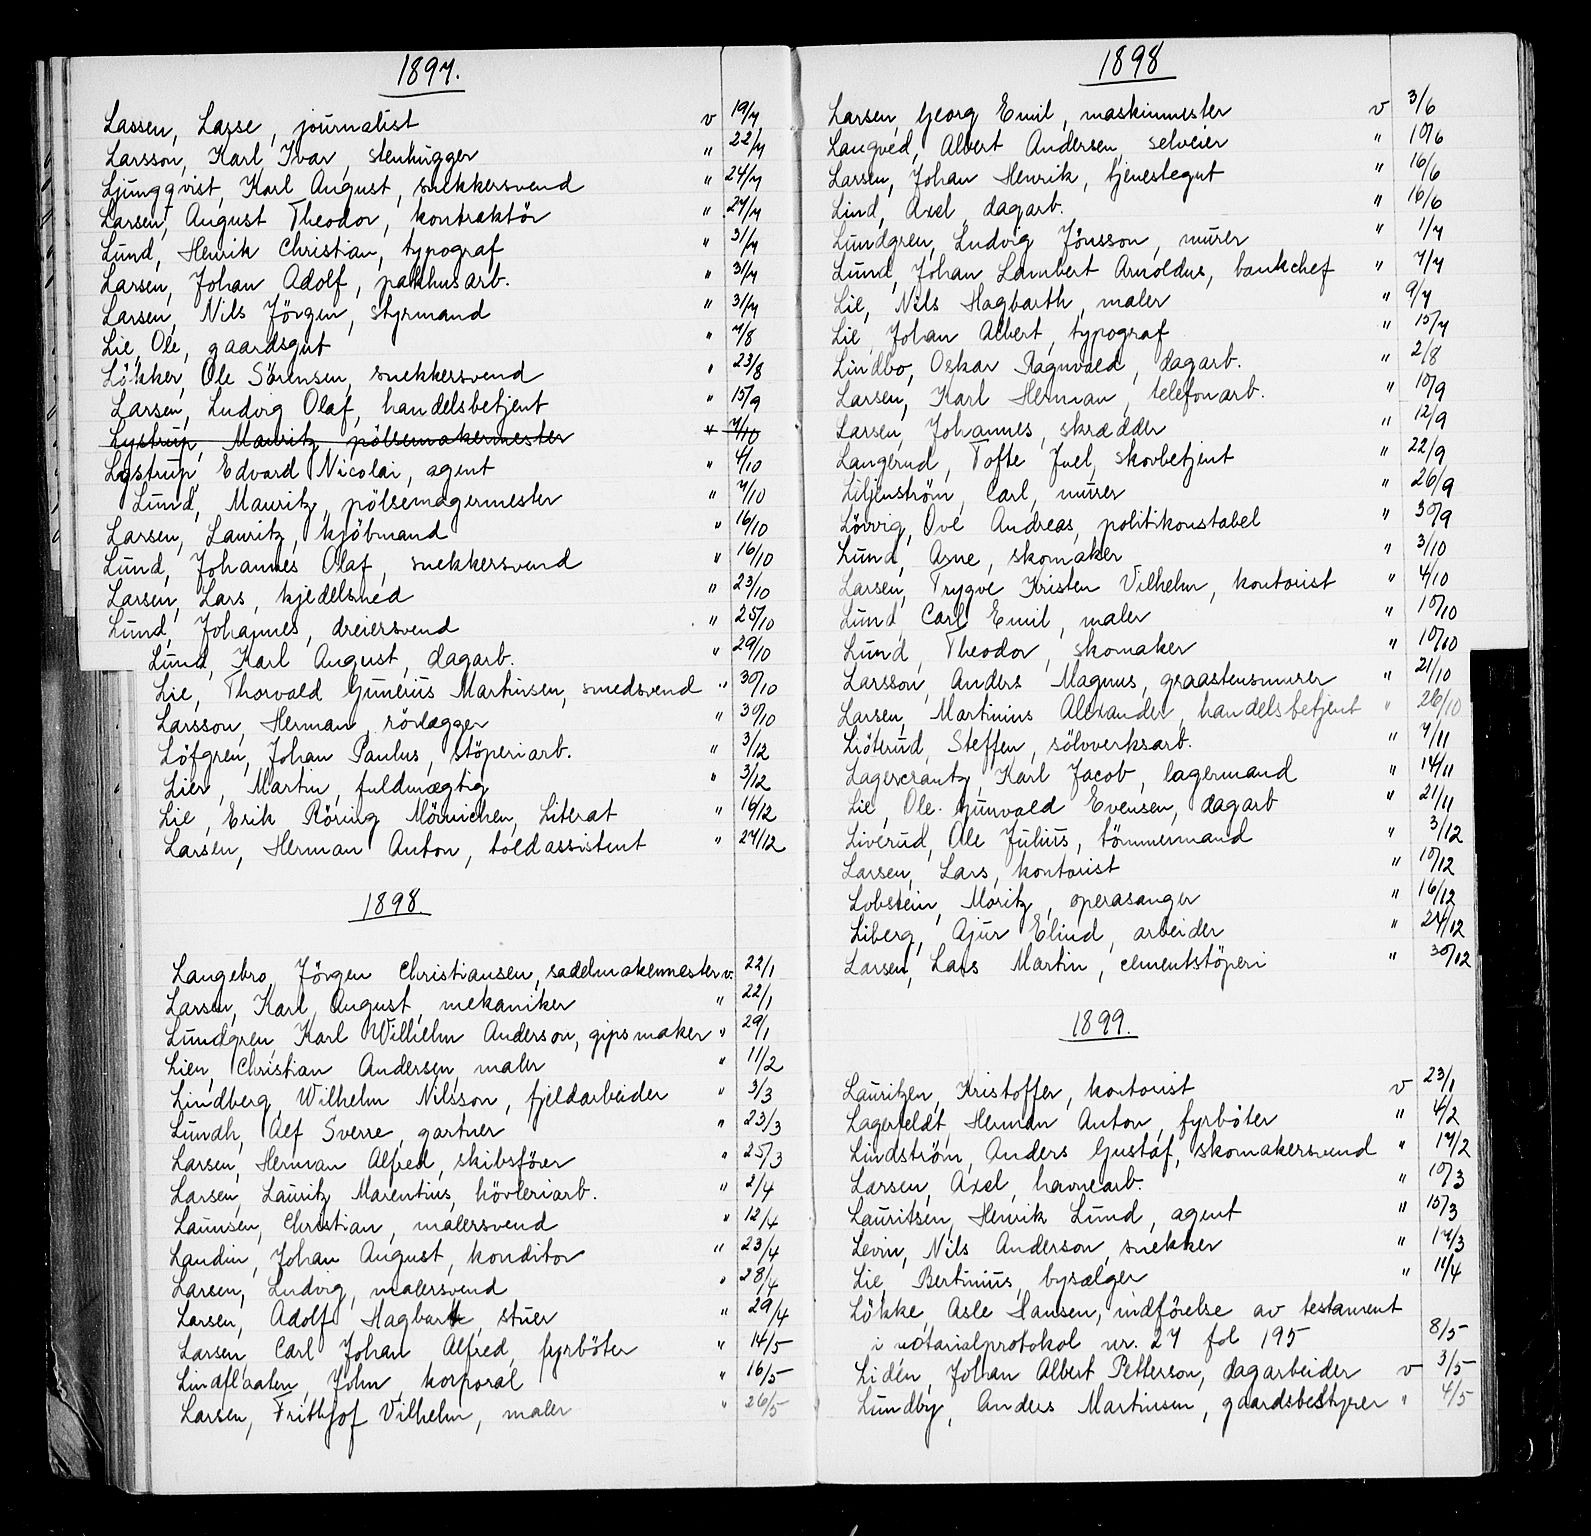 1897.
Lassen, Lasse, journalist v 19/7
Larsson, Karl Ivar, stenhugger " 22/7
Ljungqvist, Karl August, snekkersvend " 24/7
Larsen, August Theodor, kontraktör " 27/7
Lund, Henrik Christian, typograf " 31/7
Larsen, Johan Adolf, pakhusarb. " 31/7
Larsen, Nils Jörgen, styrmand " 31/7
Lie, Ole, gaardsgut " 7/8
Lökker, Ole Sörensen, snekkersvend " 23/8
Larsen, Ludvig Olaf, handelsbetjent " 15/9
Lystrup, Mauritz, pölsemakermester " 7/10
Lystrup, Edvard Nicolai, agent " 4/10
Lund, Mauritz, pölsemagermester " 7/10
Larsen, Lauritz, kjöbmand " 16/10
Lund, Johannes Olaf, snekkersvend " 16/10
Larsen, Lars, kjedelsmed " 23/10
Lund, Johannes, dreiersvend " 25/10
Lund, Karl August, dagarb. " 29/10
Lie, Thorvald Gunerius Martinsen, smedsvend " 30/10
Larsson, Herman, rörlægger " 30/10
Löfgren, Johan Paulus, stöperiarb. " 3/12
Lier, Martin, fuldmægtig " 3/12
Lie, Erik Röring Möinichen, Literat " 16/12
Larsen, Herman Anton, toldassistent " 27/12
1898.
Langebro, Jörgen Christiansen, sadelmakermester v. 22/1
Larsen, Karl August, mekaniker " 22/1
Lundgren, Karl Wilhelm Anderson, gipsmaker " 29/1
Lien, Christian Andersen, maler " 11/2
Lindberg, Wilhelm Nilsson, fjeldarbeider " 3/3
Lundh, Alf Sverre, gartner " 23/3
Larsen, Herman Alfred, skibsförer " 25/3
Larsen, Lauritz Marentius, hövleriarb. " 2/4
Laumsen, Christian, malersvend " 12/4
Landin, Johan August, konditor " 23/4
Larsen, Ludvig, malersvend " 28/4
Larsen, Adolf Hagbart, stuer " 29/4
Larsen, Carl Johan Alfred, fyrböter " 14/5
Lindflaaten, John, korporal " 16/5
Larsen, Frithjof Vilhelm, maler " 26/5
1898
Larsen, Georg Emil, maskinmester v 3/6
Langved, Albert Andersen, selveier " 10/6
Larsen, Johan Henrik, tjenestegut " 16/6
Lind, Axel, dagarb. " 16/6
Lundgren, Ludvig Jönsson, murer " 1/7
Lund, Johan Lambert Arnoldus, bankchef " 7/7
Lie, Nils Hagbarth, maler " 9/7
Lie, Johan Albert, typograf " 15/7
Lindbo, Oskar Ragnvald, dagarb. " 2/8
Larsen, Karl Herman, telefonarb. " 10/9
Larsen, Johannes, skrædder " 12/9
Langerud, Tofte Juel, skovbetjent " 22/9
Liljenström, Carl, murer " 26/9
Lövvig, Ove Andreas, politikonstabel " 30/9
Lund, Arne, skomaker " 3/10
Larsen, Trygve Kristen Vilhelm, kontorist " 4/10
Lund, Carl Emil, maler " 10/10
Lund, Theodor, skomaker " 10/10
Larsson, Anders Magnus, graastensmurer " 21/10
Larsen, Martinius Alexander, handelsbetjent " 26/10
Liöterud, Steffen, sölvverksarb. " 7/11
Lagercrantz, Karl Jacob, lagermand " 14/11
Lie, Ole Gunvald Evensen, dagarb " 21/11
Liverud, Ole Julius, tömmermand " 3/12
Larsen, Lars, kontorist " 10/12
Lobstein, Moritz, operasanger " 16/12
Liberg, Ajur Elind, arbeider " 27/12
Larsen, Lars Martin, cementstöperi " 30/12
1899.
Lauritzen, Kristoffer, kontorist v 23/1
Lagerfeldt, Herman Anton, fyrböter " 4/2
Lindström, Anders Gustaf, skomakersvend " 17/2
Larsen, Axel, havnearb. " 10/3
Lauritsen, Henrik Lund, agent " 15/3
Levin, Nils Anderson, snekker " 17/3
Lie, Bertinius, bysælger " 11/4
Lökke, Asle Hansen, indförelse av testament
i notarialprotokol nr. 27 fol 195 8/5
Lidén, Johan Albert Petterson, dagarbeider v 3/5
Lundby, Anders Martinsen, gaardsbestyrer " 4/5